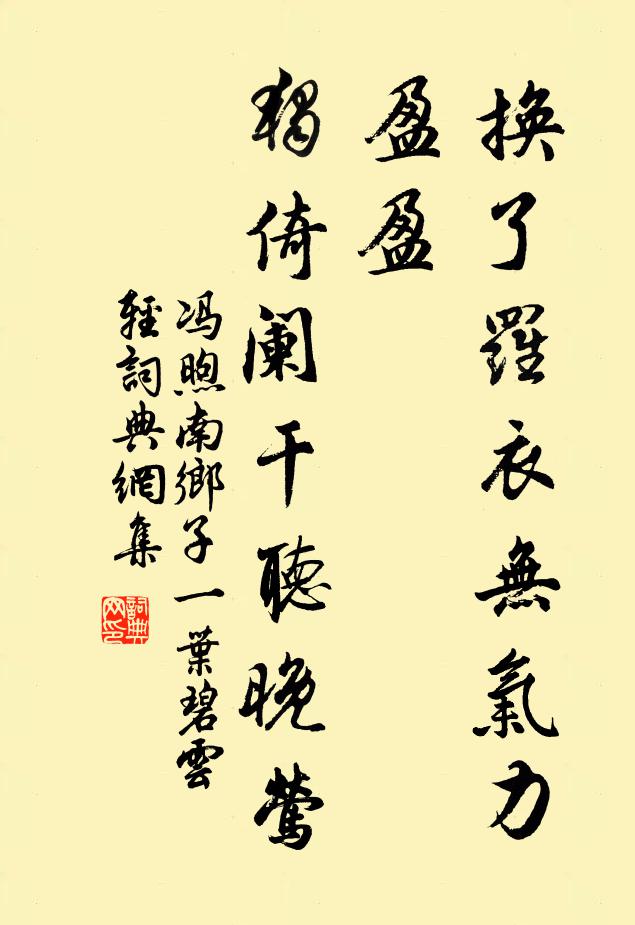 換了羅衣無氣力
盈盈
獨倚闌干聽晚鶯
馮煦南鄉子一葉碧雲
輕詞典網集
詞典
网印